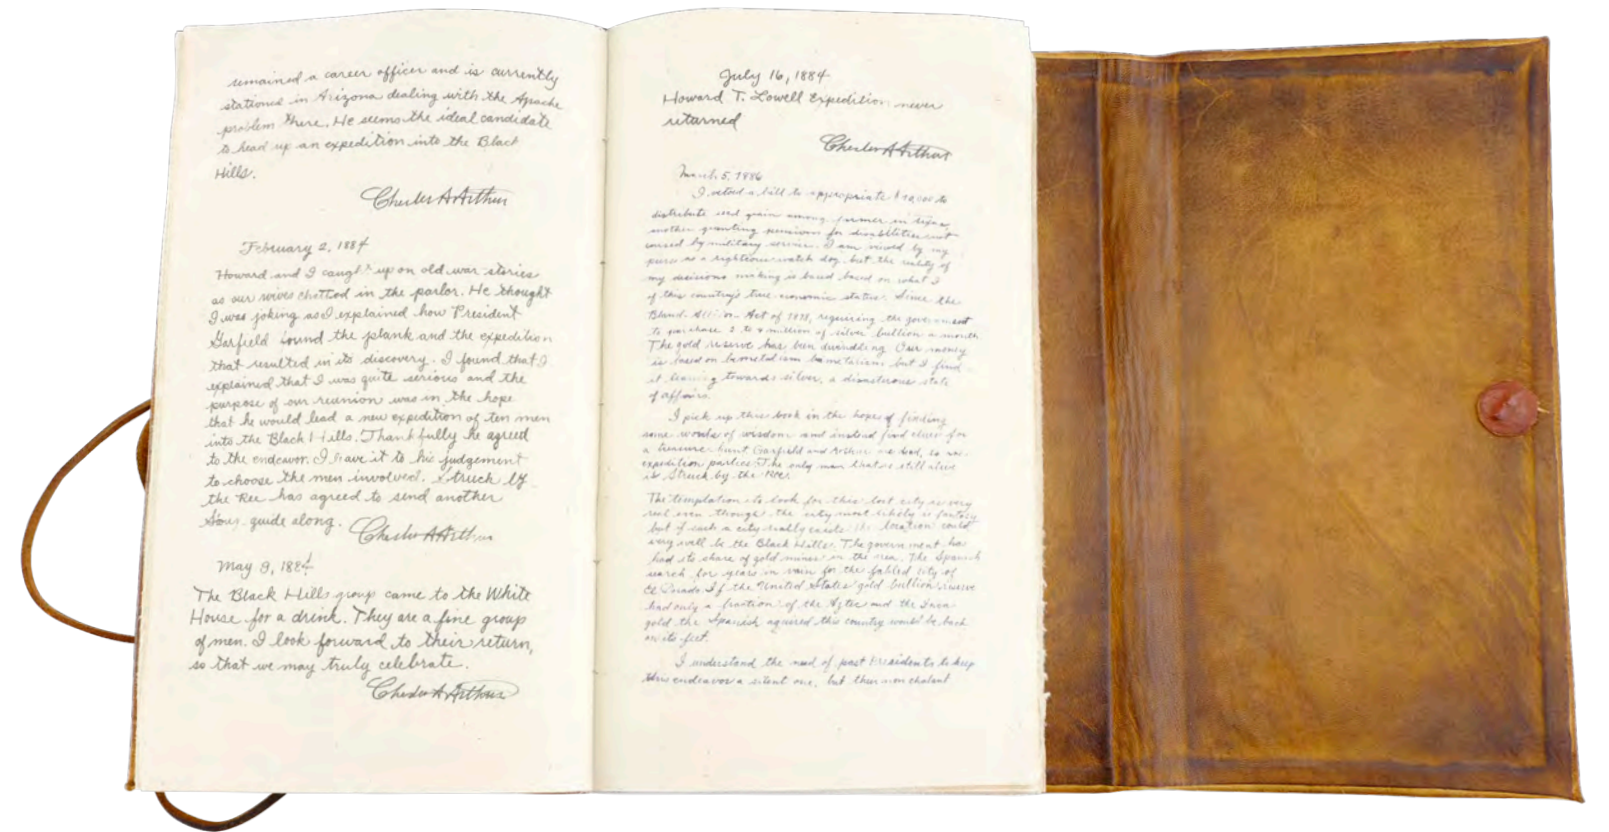 remained a career officer and is currently
stationed in Arizona dealing with the Apache
problem there. He seems the ideal candidate
to head up an expedition into the Black
Hills.
Chester A Arthur
February 2, 1884
Howard and I caught up on old war stories
as our wives chattod in the parlor. He thought
I was joking as I explained how President
Garfield found the plank and the expedition
that resulted in its discovery. I found that I
explained that I was quite serious and the
purpose of our reunion was in the hope
that he would lead a new expedition of ten men
into the Black Hills. Thankfully he agreed
to the endeavor. I leave it to his judgement
to choose the men involved. Struck by
the Ree has agreed to send another
Sioux guide along.
Chester A Arthur
May 9, 1884
The Black Hills group came to the White
House for a drink. They are a fine group
of men. I look forward to their return,
so that we may truly celebrate.
Chester A Arthur
July 16, 1884
Howard T. Lowell Expedition never
returned
Chester A Arthur
March 5, 1886
I vetoed a bill to appropriate $10,000 to
distribute seed grain among farmer in Texas,
another granting pensions for disabilities not
caused by military service. I am viewed by my
as a righteous watch dog, but the reality of
my decisions making is based based on what I
of this country's true economic status. Since the
Bland-Allison Act of 1878, requiring the government
to purchase 2 to 4 million of silver bullion a month
The gold reserve has been dwindling. Our money
is based on bimetalism but I find
it leaning towards silver, a disasterous state
of affairs.
I pick up this book in the hopes of finding
some words of wisdom and instead find clues for
a treasure hunt Garfield and Arthur are dead, so are
expedition parties. The only man that is still alive
is Struck by the Ree.
The temptation to look for this lost city is very
real even though the city most likely is fantasy
but if such a city really exists the location could
very well be the Black Hills. The government has
had its share of gold mines in the area. The Spanish
search for years in vain for the fabled city of
El Dorado. If the United States' gold bullion reserve
had only a fraction of the Aztec and the Inca
gold the Spanish aquired this country would be back
on its feet.
I understand the need of past Presidents to keep
this endeavor a silent one, but then non chalant